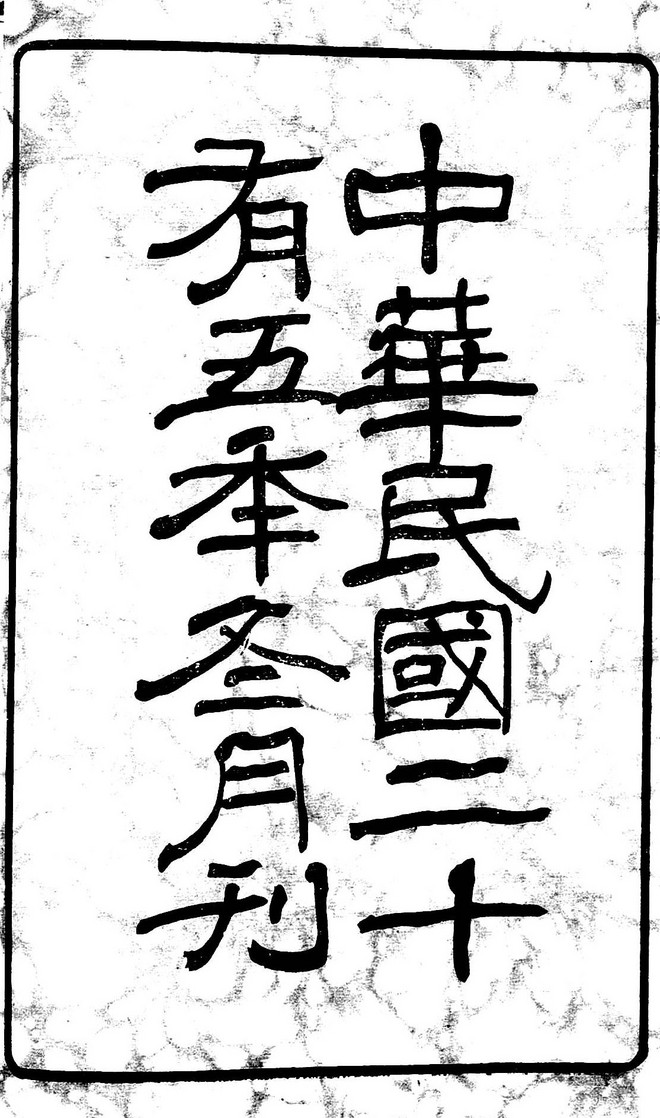 中華民國二十
有五年冬月刊